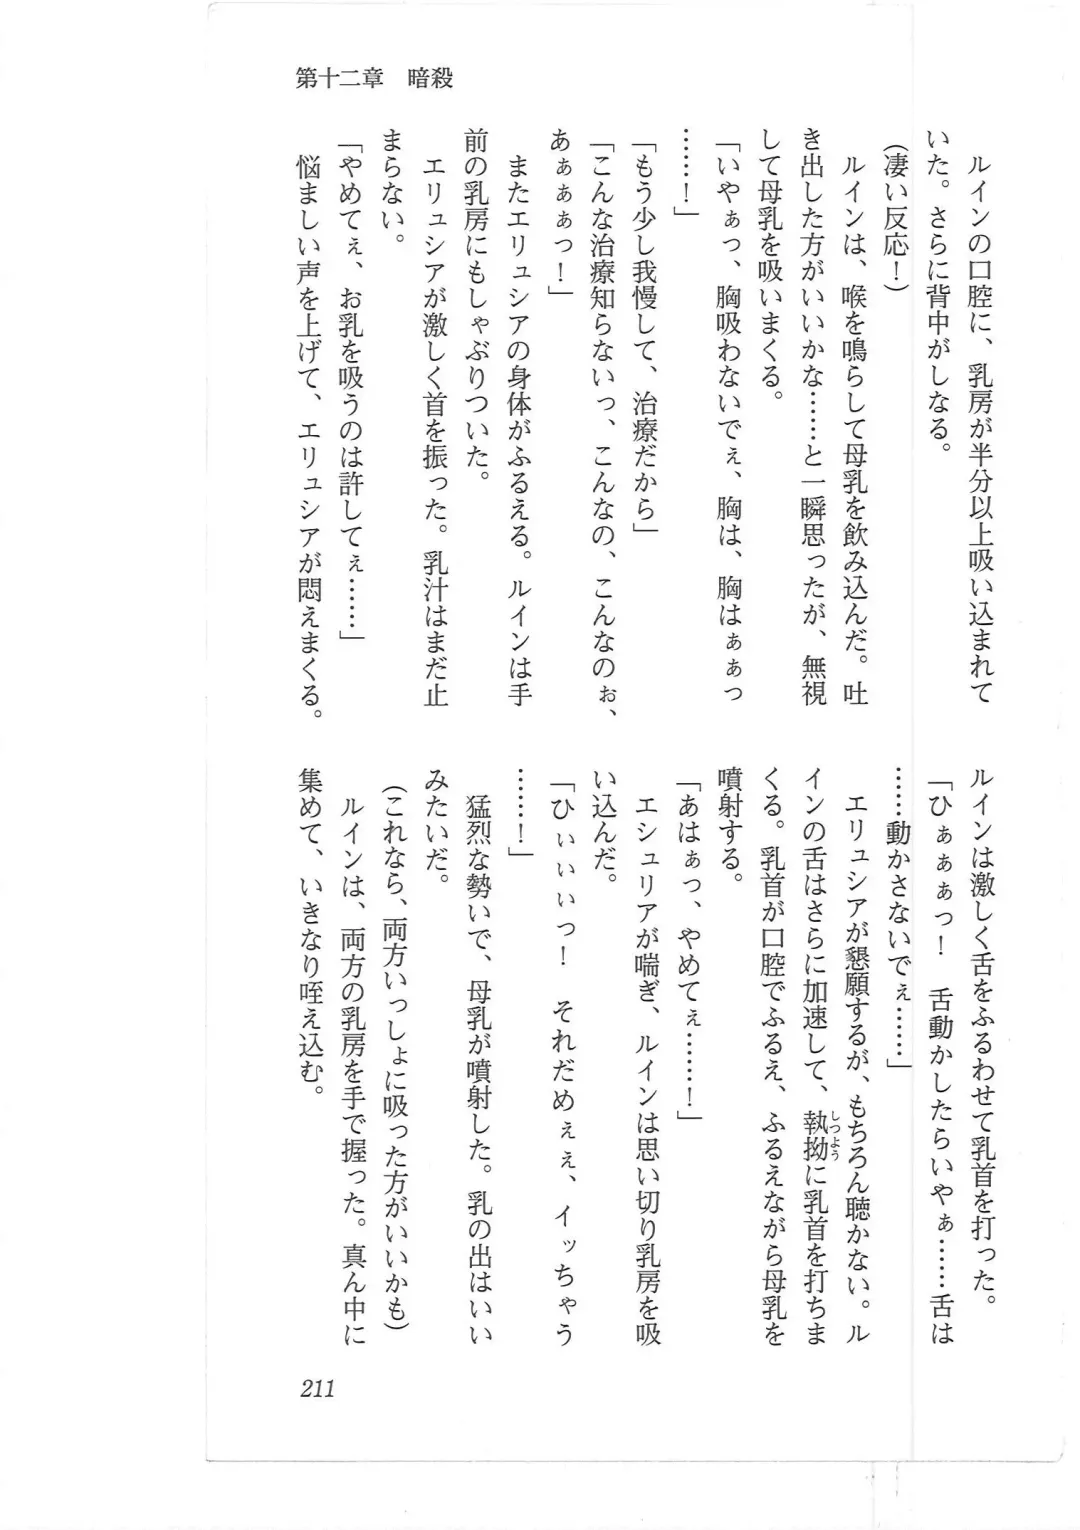 第十二章　暗殺
　ルインの口腔に、乳房が半分以上吸い込まれて
いた。さらに背中がしなる。
(凄い反応！)
　ルインは、喉を鳴らして母乳を飲み込んだ。吐
き出した方がいいかな……と一瞬思ったが、無視
して母乳を吸いまくる。
「いやぁっ、胸吸わないでぇ、胸は、胸はぁぁっ
……！」
「もう少し我慢して、治療だから」
「こんな治療知らないっ、こんなの、こんなのぉ、
あぁぁぁっ！」
　またエリュシアの身体がふるえる。ルインは手
前の乳房にもしゃぶりついた。
　エリュシアが激しく首を振った。乳汁はまだ止
まらない。
「やめてぇ、お乳を吸うのは許してぇ……」
　悩ましい声を上げて、エリュシアが悶えまくる。
ルインは激しく舌をふるわせて乳首を打った。
「ひぁぁぁっ！　舌動かしたらいやぁ……舌は
……動かさないでぇ……」
　エリュシアが懇願するが、もちろん聴かない。ル
インの舌はさらに加速して、執拗に乳首を打ちま
しつよう
くる。乳首が口腔でふるえ、ふるえながら母乳を
噴射する。
「あはぁっ、やめてぇ……！」
　エシュリアが喘ぎ、ルインは思い切り乳房を吸
い込んだ。
「ひぃぃぃっ！　それだめぇぇ、イッちゃう
……！」
　猛烈な勢いで、母乳が噴射した。乳の出はいい
みたいだ。
(これなら、両方いっしょに吸った方がいいかも)
　ルインは、両方の乳房を手で握った。真ん中に
集めて、いきなり咥え込む。
211